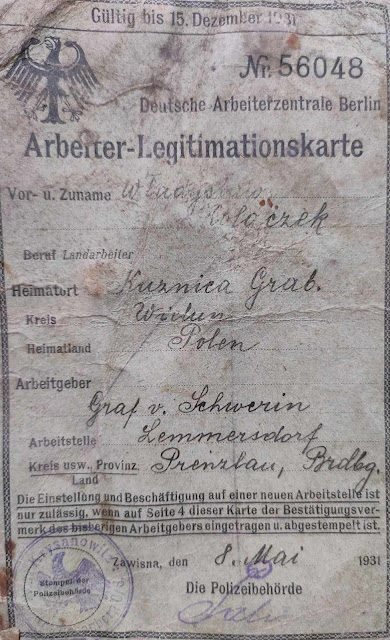 Gültig bis 15. Dezember 1931
Nr. 56048
Deutsche Arbeiterzentrale Berlin
Arbeiter-Legitimationskarte
Vor- u. Zuname Władysław
Beruf Landarbeiter
Heimatort Kuznica Grab.
Kreis Wielun
Heimatland Polen
Arbeitgeber
Graf v. Schwerin
Arbeitstelle Lemmersdorf
Kreis usw., Provinz, Prenzlau, Brdbg.
Land
Die Einstellung und Beschäftigung auf einer neuen Arbeitstelle ist
nur zulässig, wenn auf Seite 4 dieser Karte der Bestätigungsver-
merk des bisherigen Arbeitgebers eingetragen u. abgestempelt ist.
Zawisna, den 8. Mai 1931
Stempel der
Polizeibehörde
Die Polizeibehörde